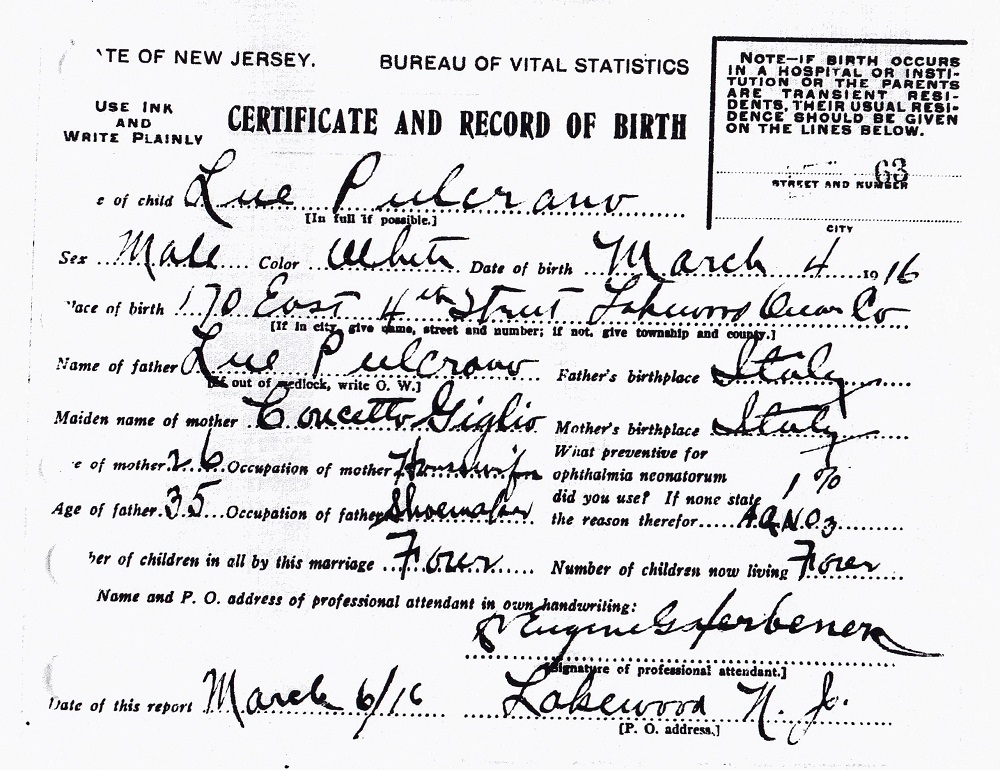 TE OF NEW JERSEY. BUREAU OF VITAL STATISTICS
USE INK
AND
WRITE PLAINLY
CERTIFICATE AND RECORD OF BIRTH
NOTE—IF BIRTH OCCURS
IN A HOSPITAL OR INSTI-
TUTION OR THE PARENTS
ARE TRANSIENT RESI-
DENTS, THEIR USUAL RESI-
DENCE SHOULD BE GIVEN
ON THE LINES BELOW.
63
STREET AND NUMBER
CITY
e of child Lue Pulcrano
[In full if possible.]
Sex Male Color White Date of birth March 4 1916
lace of birth 170 East 4th Street Lakewood Ocean Co
[If in city, give name, street and number; if not, give township and county.]
Name of father Lue Pulcrano Father's birthplace Italy
[If out of wedlock, write O. W.]
Maiden name of mother Concetto Giglio Mother's birthplace Italy
e of mother 26 Occupation of mother Housewife
What preventive for
ophthalmia neonatorum 1%
did you use? If none state
the reason therefor AgNO3
Age of father 35 Occupation of father Shoemaker
ber of children in all by this marriage Four Number of children now living Four
Name and P. O. address of professional attendant in own handwriting:
Eugene G. Herbener
[Signature of professional attendant.]
Date of this report March 6/16 Lakewood N. J.
[P. O. address.]